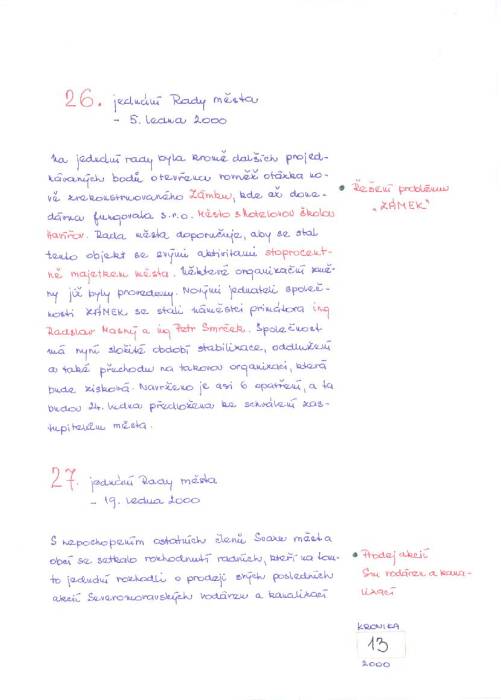 26. jednání Rady města
- 5. ledna 2000
Na jednání rady byla kromě dalších projed-
návaných bodů otevřena rovněž otázka no-
vě zrekonstruovaného Zámku, kde až done-
dávna fungovala s.r.o. Město s Hotelovou školou
Havířov. Rada města doporučuje, aby se stal
tento objekt se svými aktivitami stoprocent-
ně majetkem města. Některé organizační změ-
ny již byly provedeny. Novými jednateli společ-
nosti ZÁMEK se stali náměstci primátora ing
Radslav Masný a ing Petr Smrček. Společnost
má nyní složité období stabilizace, oddlužení
a také přechodu na takovou organizaci, která
bude zisková. Navrženo je asi 6 opatření, a ta
budou 24. ledna předložena ke schválení zas-
tupitelům města.
• Řešení problému
"ZÁMEK"
27. jednání Rady města
- 19. ledna 2000
S nepochopením ostatních členů Svazu měst a
obcí se setkalo rozhodnutí radních, kteří na tom-
to jednání rozhodli o prodeji svých posledních
akcií Severomoravských vodáren a kanalizací
• Prodej akcií
Sm vodáren a kana-
lizací
KRONIKA
13
2000